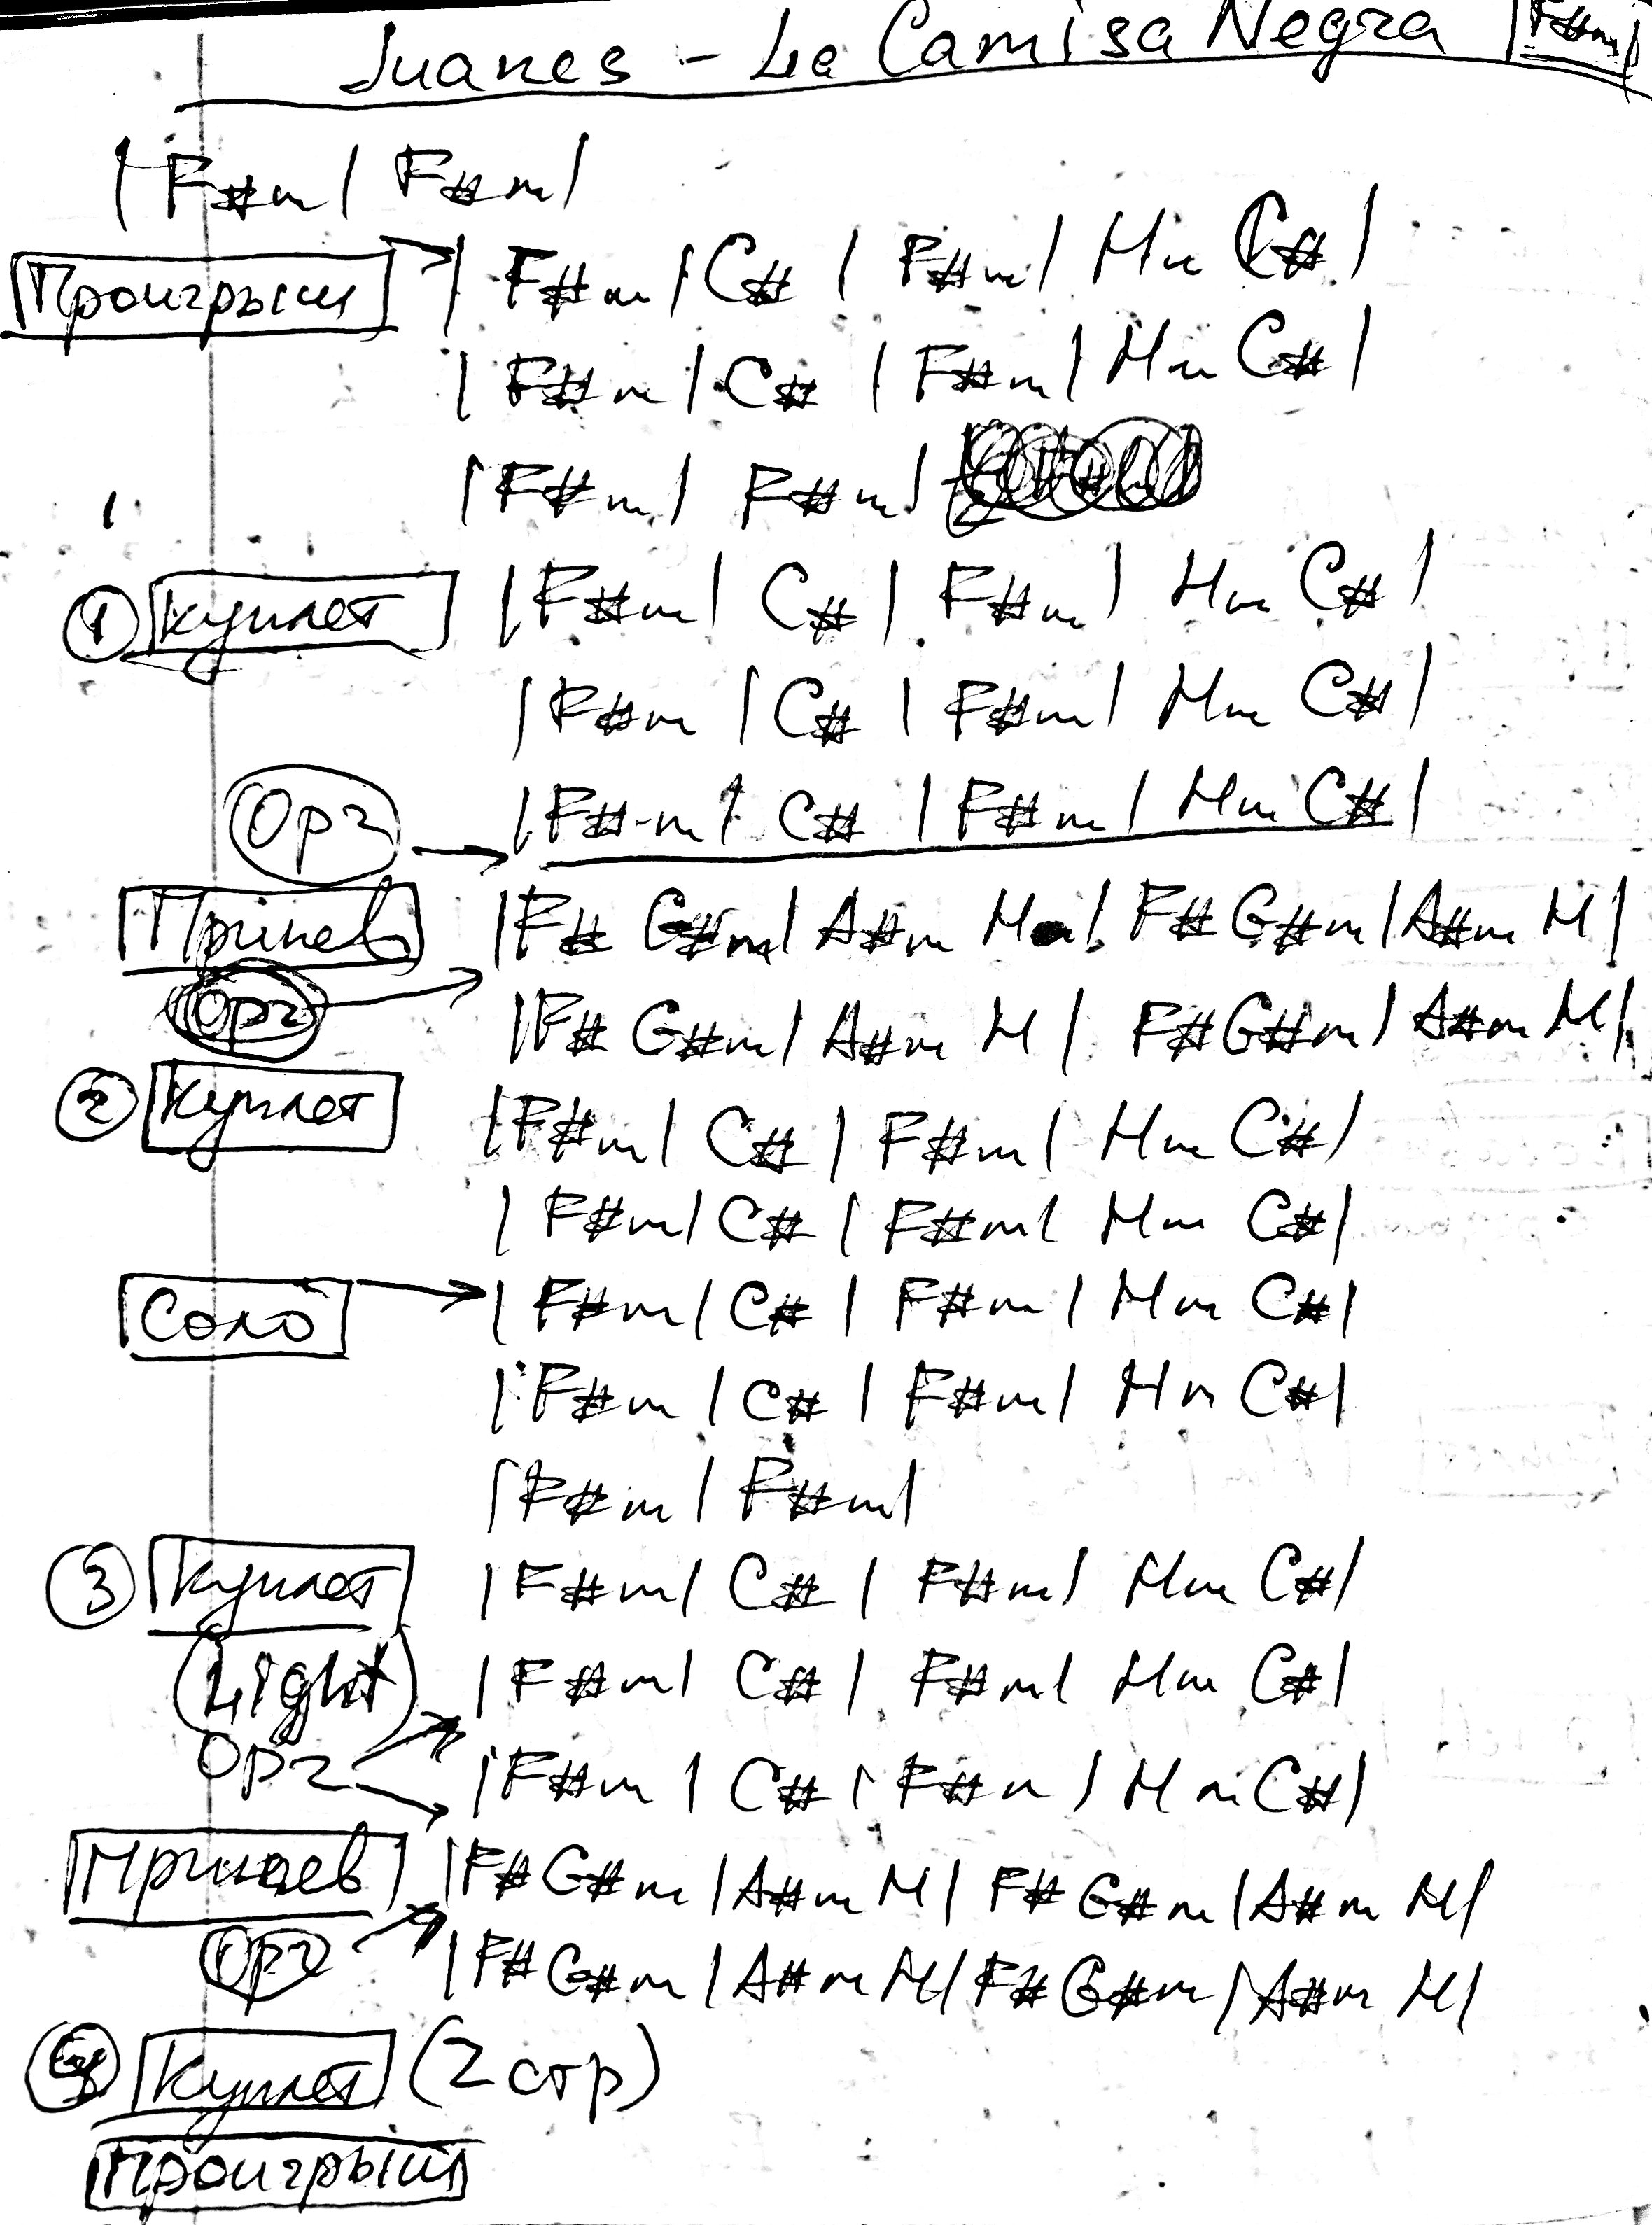 Juanes - La Camisa Negra |F#m|
| F#m | F#m |
Проигрыш | F#m | C# | F#m | Hm C# |
| F#m | C# | F#m | Hm C# |
| F#m | F#m |
① Куплет | F#m | C# | F#m | Hm C# |
| F#m | C# | F#m | Hm C# |
Орг → | F#m | C# | F#m | Hm C# |
Припев | F# G#m | A#m H | F# G#m | A#m H |
Орг → | F# G#m | A#m H | F# G#m | A#m H |
② Куплет | F#m | C# | F#m | Hm C# |
| F#m | C# | F#m | Hm C# |
Соло → | F#m | C# | F#m | Hm C# |
| F#m | C# | F#m | Hm C# |
| F#m | F#m |
③ Куплет | F#m | C# | F#m | Hm C# |
(Light) | F#m | C# | F#m | Hm C# |
Орг | F#m | C# | F#m | Hm C# |
Припев | F# G#m | A#m H | F# G#m | A#m H |
Орг → | F# G#m | A#m H | F# G#m | A#m H |
Куплет (2 стр)
Проигрыш